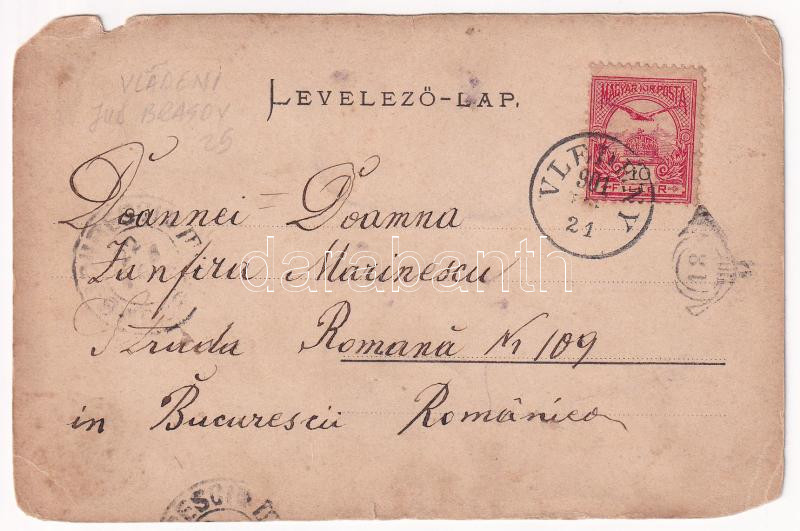 VLÁDENI
Jud BRASOV
25
LEVELEZŐ-LAP.
MAGYAR KIR. POSTA
10
FILLÉR
VLEDÉNY
901
21
18
Doannei = Doamna
Zunfira Marinescu
Strada Romană N 109
in Bucurescii Românica
darabanth